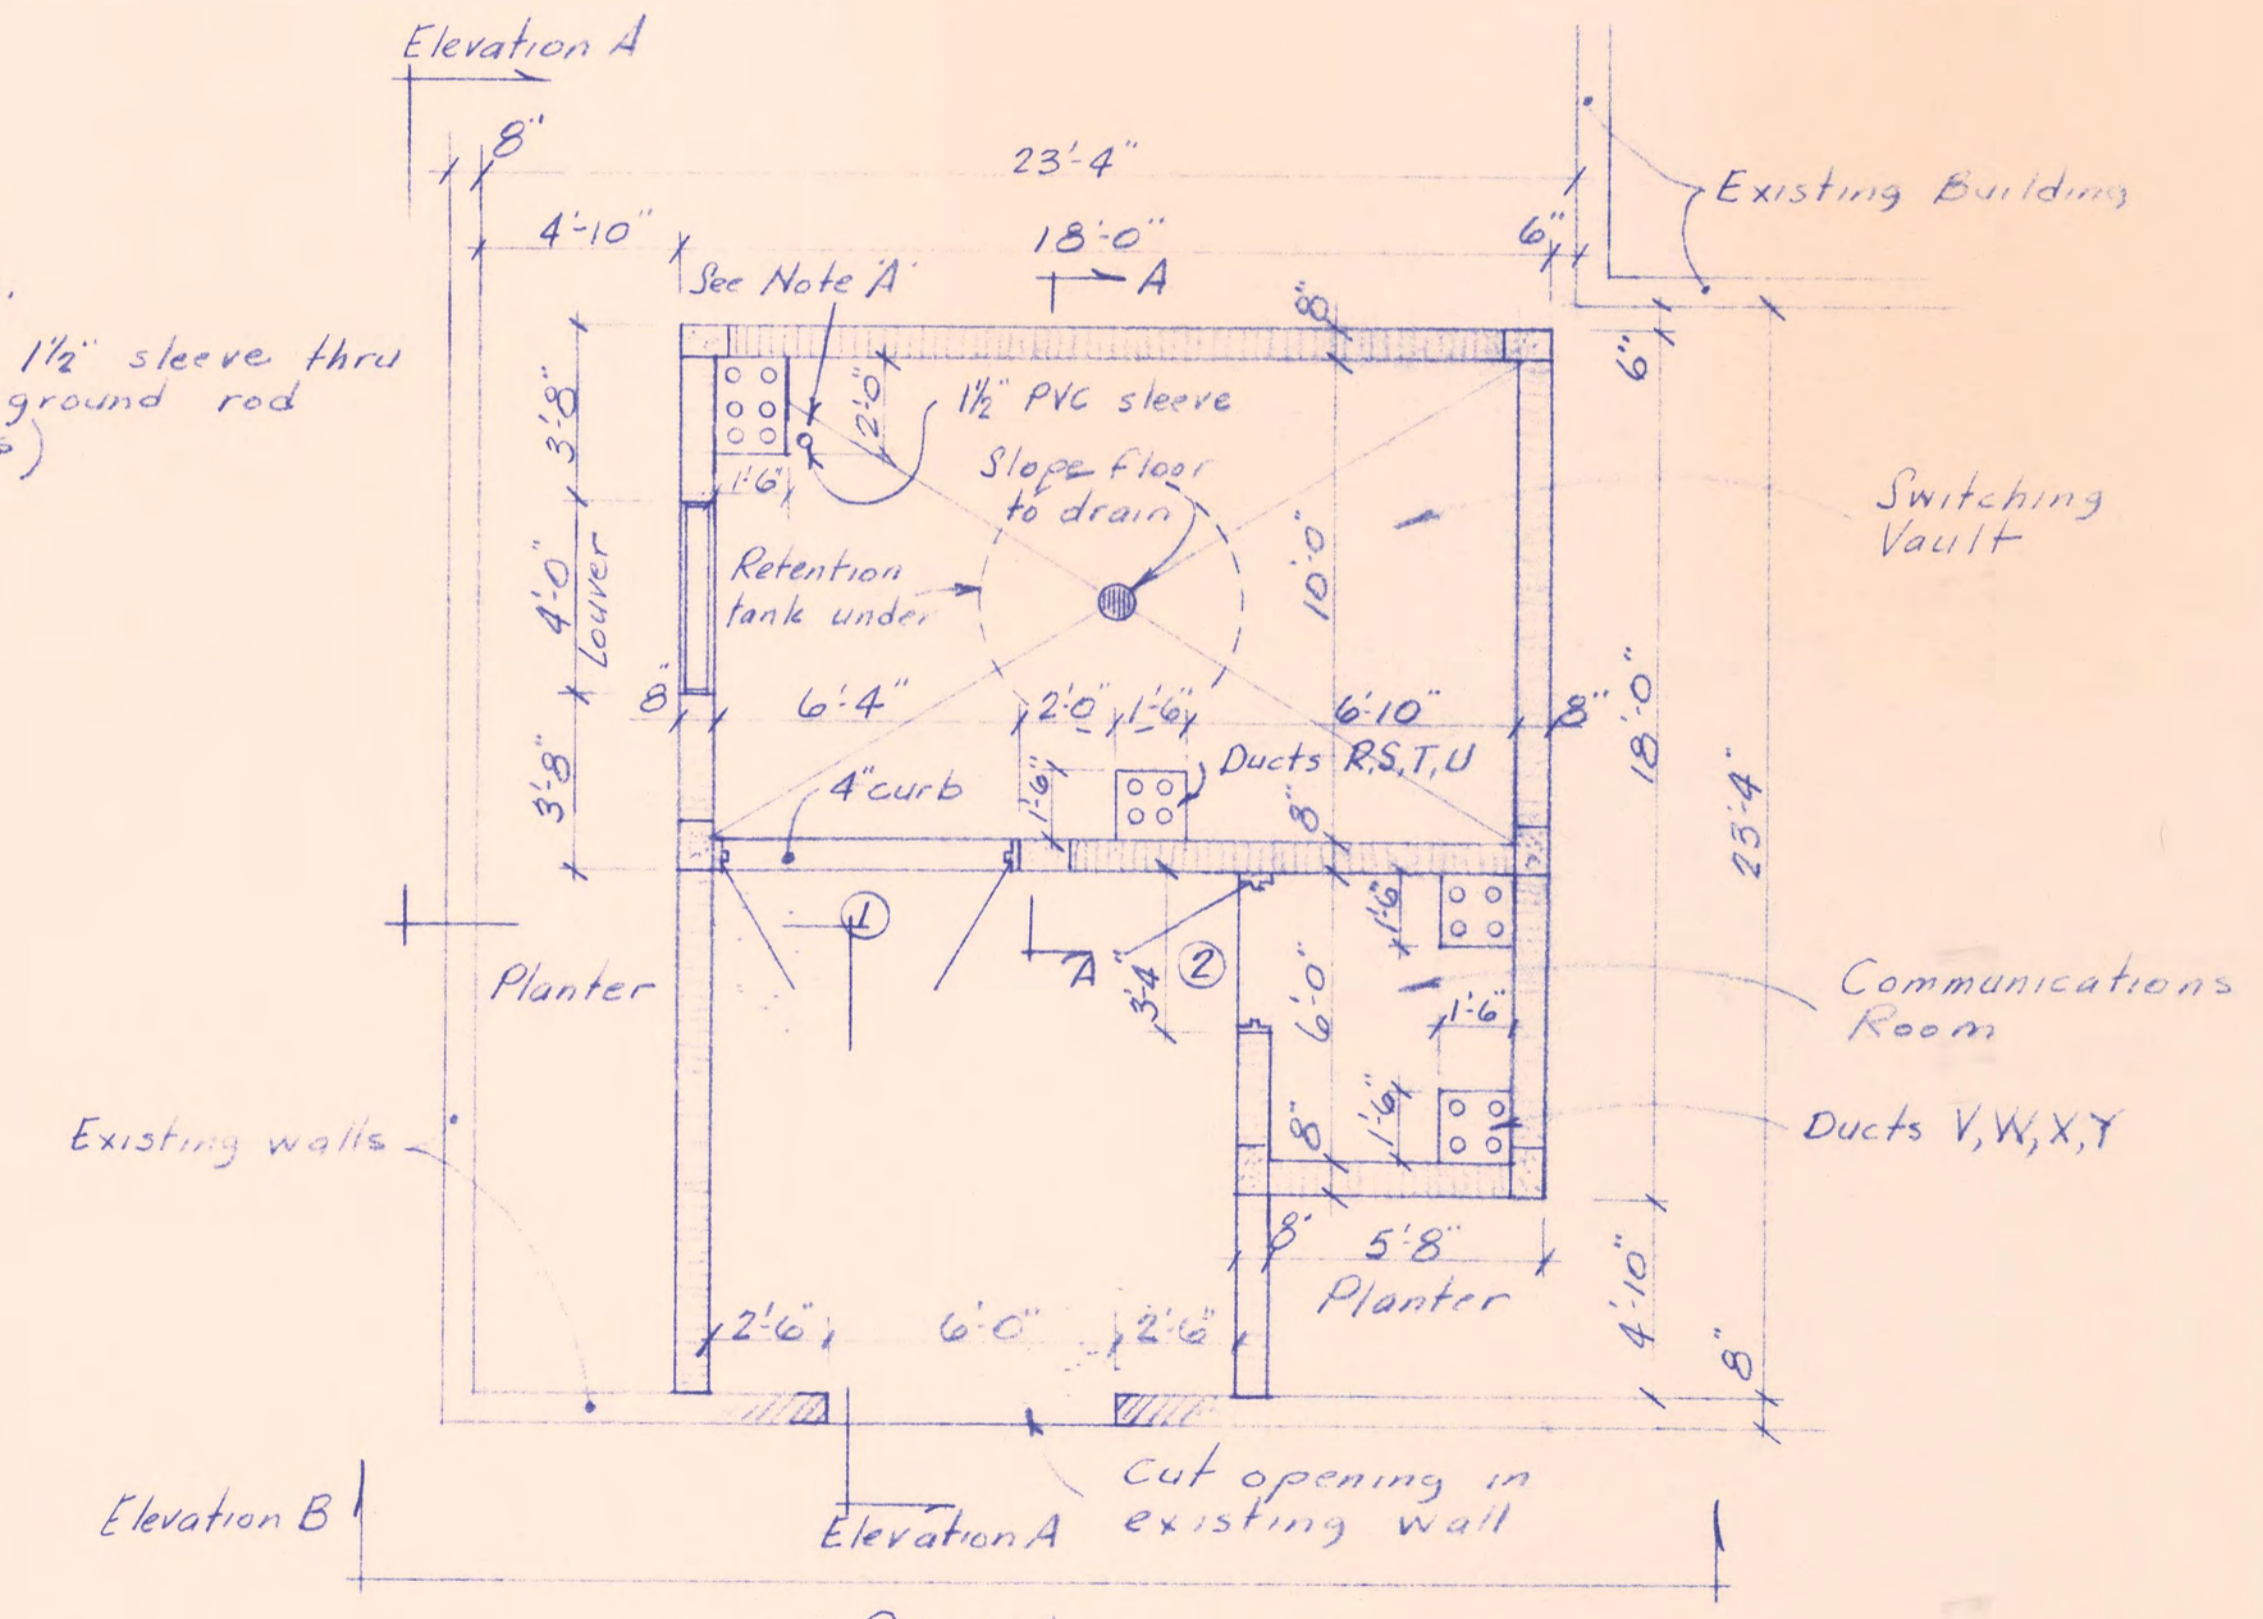 Elevation A
8"
23'-4"
Existing Building
4'-10"
18'-0"
6"
See Note 'A'
A
8"
1½" sleeve thru
ground rod
6"
3'-8"
2'-0"
1½" PVC sleeve
Slope floor
to drain
1'-6"
Switching
Vault
4'-0"
Louver
10'-0"
Retention
tank under
8"
6'-4"
2'-0"
1'-6"
6'-10"
8"
18'-0"
3'-8"
4" curb
1'-6"
Ducts R,S,T,U
8"
23'-4"
1
A
2
1'-6"
3'-4"
6'-0"
Planter
Communications
Room
1'-6"
Existing walls
8"
1'-6"
Ducts V,W,X,Y
8"
5'-8"
Planter
4'-10"
2'-6"
6'-0"
2'-6"
8"
Cut opening in
existing wall
Elevation B
Elevation A